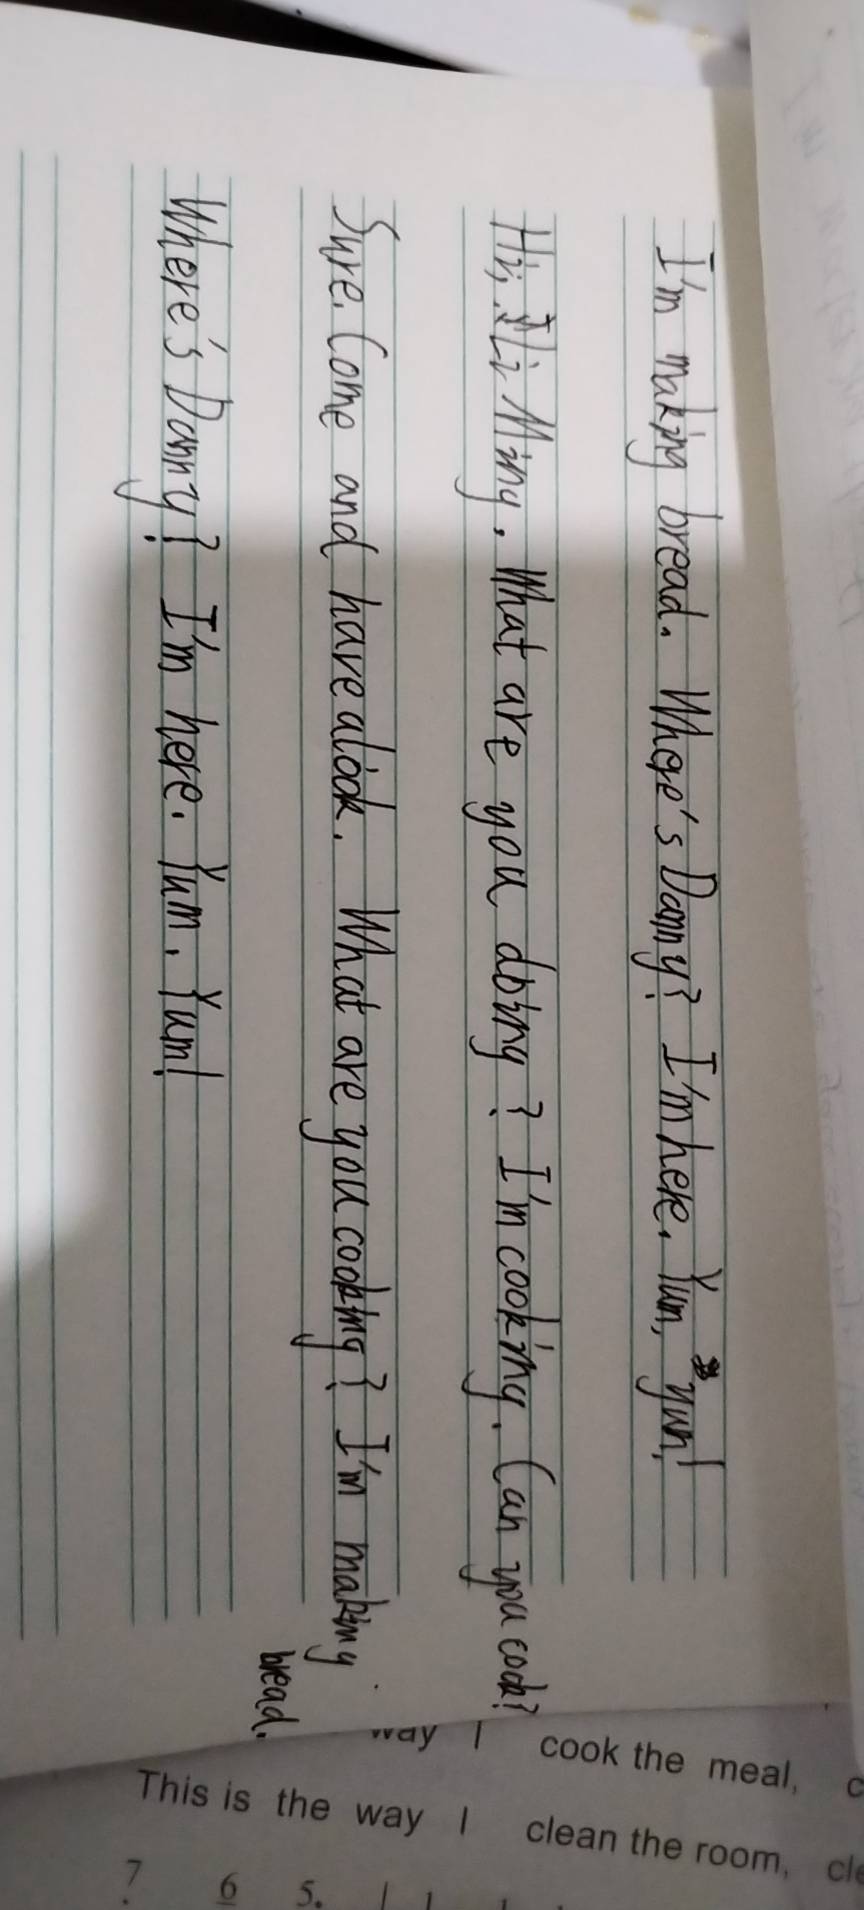 I'm making bread. Where's Danny? I'm here. Yum, yum!
Hi, Li Ming. What are you doing? I'm cooking. Can you cook?
Sure. Come and have a look. What are you cooking? I'm making
bread.
Where's Danny? I'm here. Yum, Yum!
way I cook the meal, c
This is the way I clean the room, cle
7 6 5.